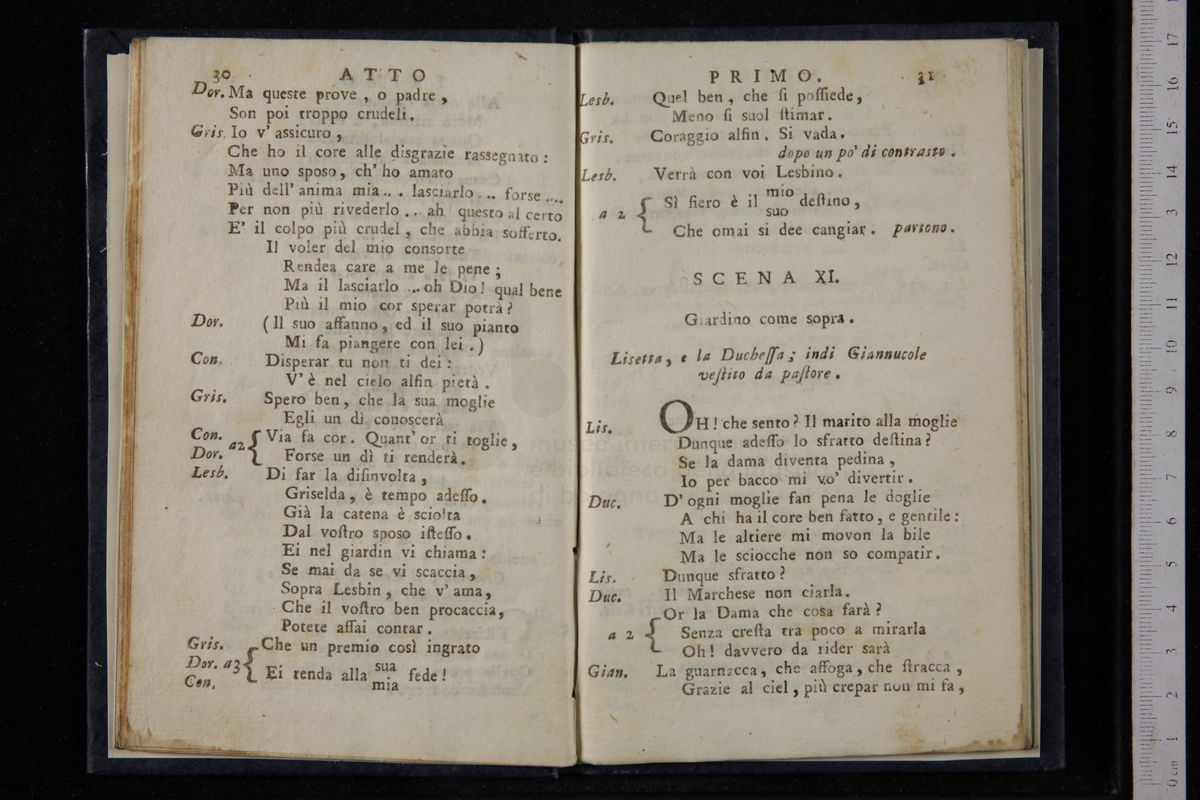 30 ATTO
Dor. Ma queste prove, o padre,
Son poi troppo crudeli.
Gris. Io v' assicuro,
Che ho il core alle disgrazie rassegnato:
Ma uno sposo, ch' ho amato
Più dell' anima mia... lasciarlo ... forse ....
Per non più rivederlo .. ah questo al certo
E' il colpo più crudel, che abbia sofferto.
Il voler del mio consorte
Rendea care a me le pene;
Ma il lasciarlo ... oh Dio! qual bene
Più il mio cor sperar potrà?
Dor. (Il suo affanno, ed il suo pianto
Mi fa piangere con lei.)
Con. Disperar tu non ti dei:
V' è nel cielo alfin pietà.
Gris. Spero ben, che la sua moglie
Egli un dì conoscerà
Con. a2 { Via fa cor. Quant' or ti toglie,
Dor. Forse un dì ti renderà.
Lesb. Di far la disinvolta,
Griselda, è tempo adeſſo.
Già la catena è sciolta
Dal voſtro sposo iſteſſo.
Ei nel giardin vi chiama:
Se mai da se vi scaccia,
Sopra Lesbin, che v' ama,
Che il voſtro ben procaccia,
Potete aſſai contar.
Gris. Che un premio così ingrato
Dor. a3 { Ei renda alla sua fede!
Con. mia
PRIMO. 31
Lesb. Quel ben, che ſi poſſiede,
Meno ſi suol ſtimar.
Gris. Coraggio alfin. Si vada.
dopo un po' di contrasto.
Lesb. Verrà con voi Lesbino.
a 2 { Sì fiero è il mio deſtino,
suo
Che omai si dee cangiar. partono.
SCENA XI.
Giardino come sopra.
Lisetta, e la Ducheſſa; indi Giannucole
veſtito da paſtore.
Lis. OH! che sento? Il marito alla moglie
Dunque adeſſo lo sfratto deſtina?
Se la dama diventa pedina,
Io per bacco mi vo' divertir.
Duc. D' ogni moglie fan pena le doglie
A chi ha il core ben fatto, e gentile:
Ma le altiere mi movon la bile
Ma le sciocche non so compatir.
Lis. Dunque sfratto?
Duc. Il Marchese non ciarla.
Or la Dama che cosa farà?
a 2 { Senza creſta tra poco a mirarla
Oh! davvero da rider sarà
Gian. La guarnacca, che affoga, che ſtracca,
Grazie al ciel, più crepar non mi fa,